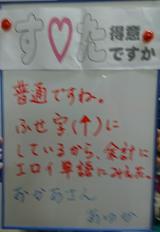 す♡た 得意
ですか
普通ですね。
ふせ字(↑)に
しているから、余計に
エロイ単語にみえた。
おかあさん
あゆか